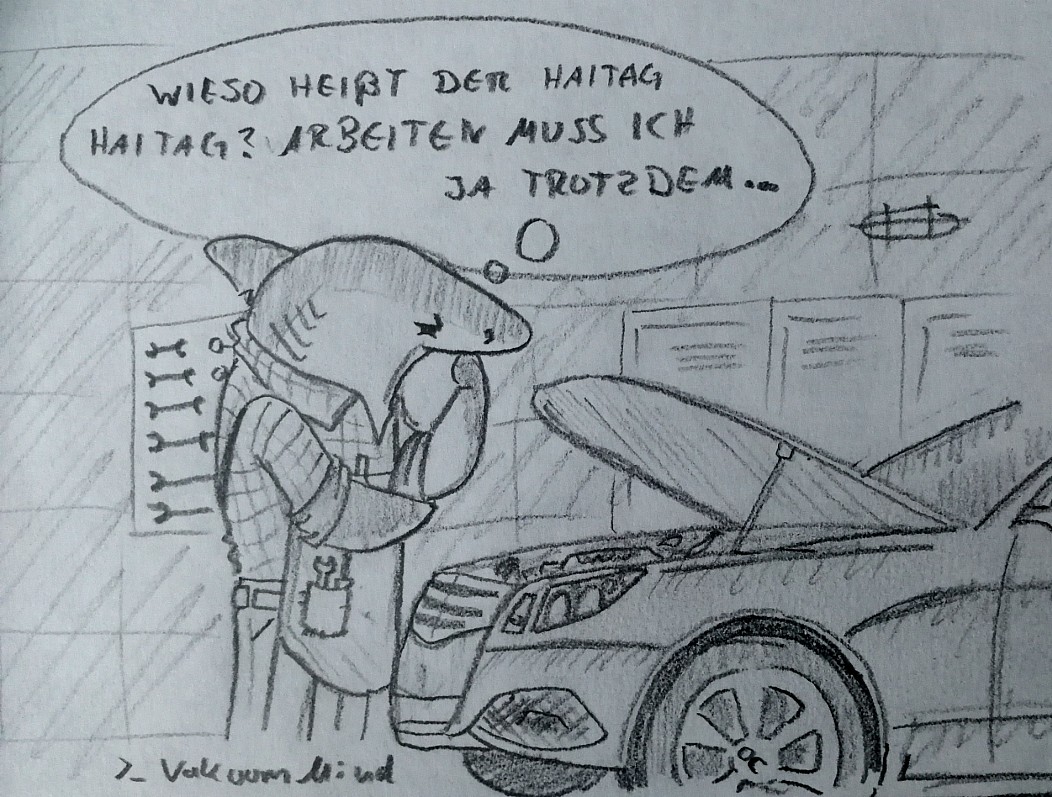 WIESO HEIẞT DER HAITAG
HAITAG? ARBEITEN MUSS ICH
JA TROTZDEM...
>_ VakuumMind